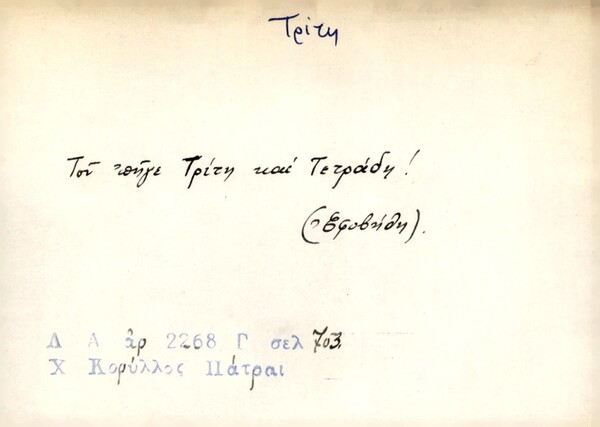 Τρίτη
Τοῦ 'πῆγε Τρίτη καί Τετράδη!
(Ἐφοβήθη).
Λ Α ἀρ 2268 Γ σελ 703
Χ Κορύλλος Πάτραι